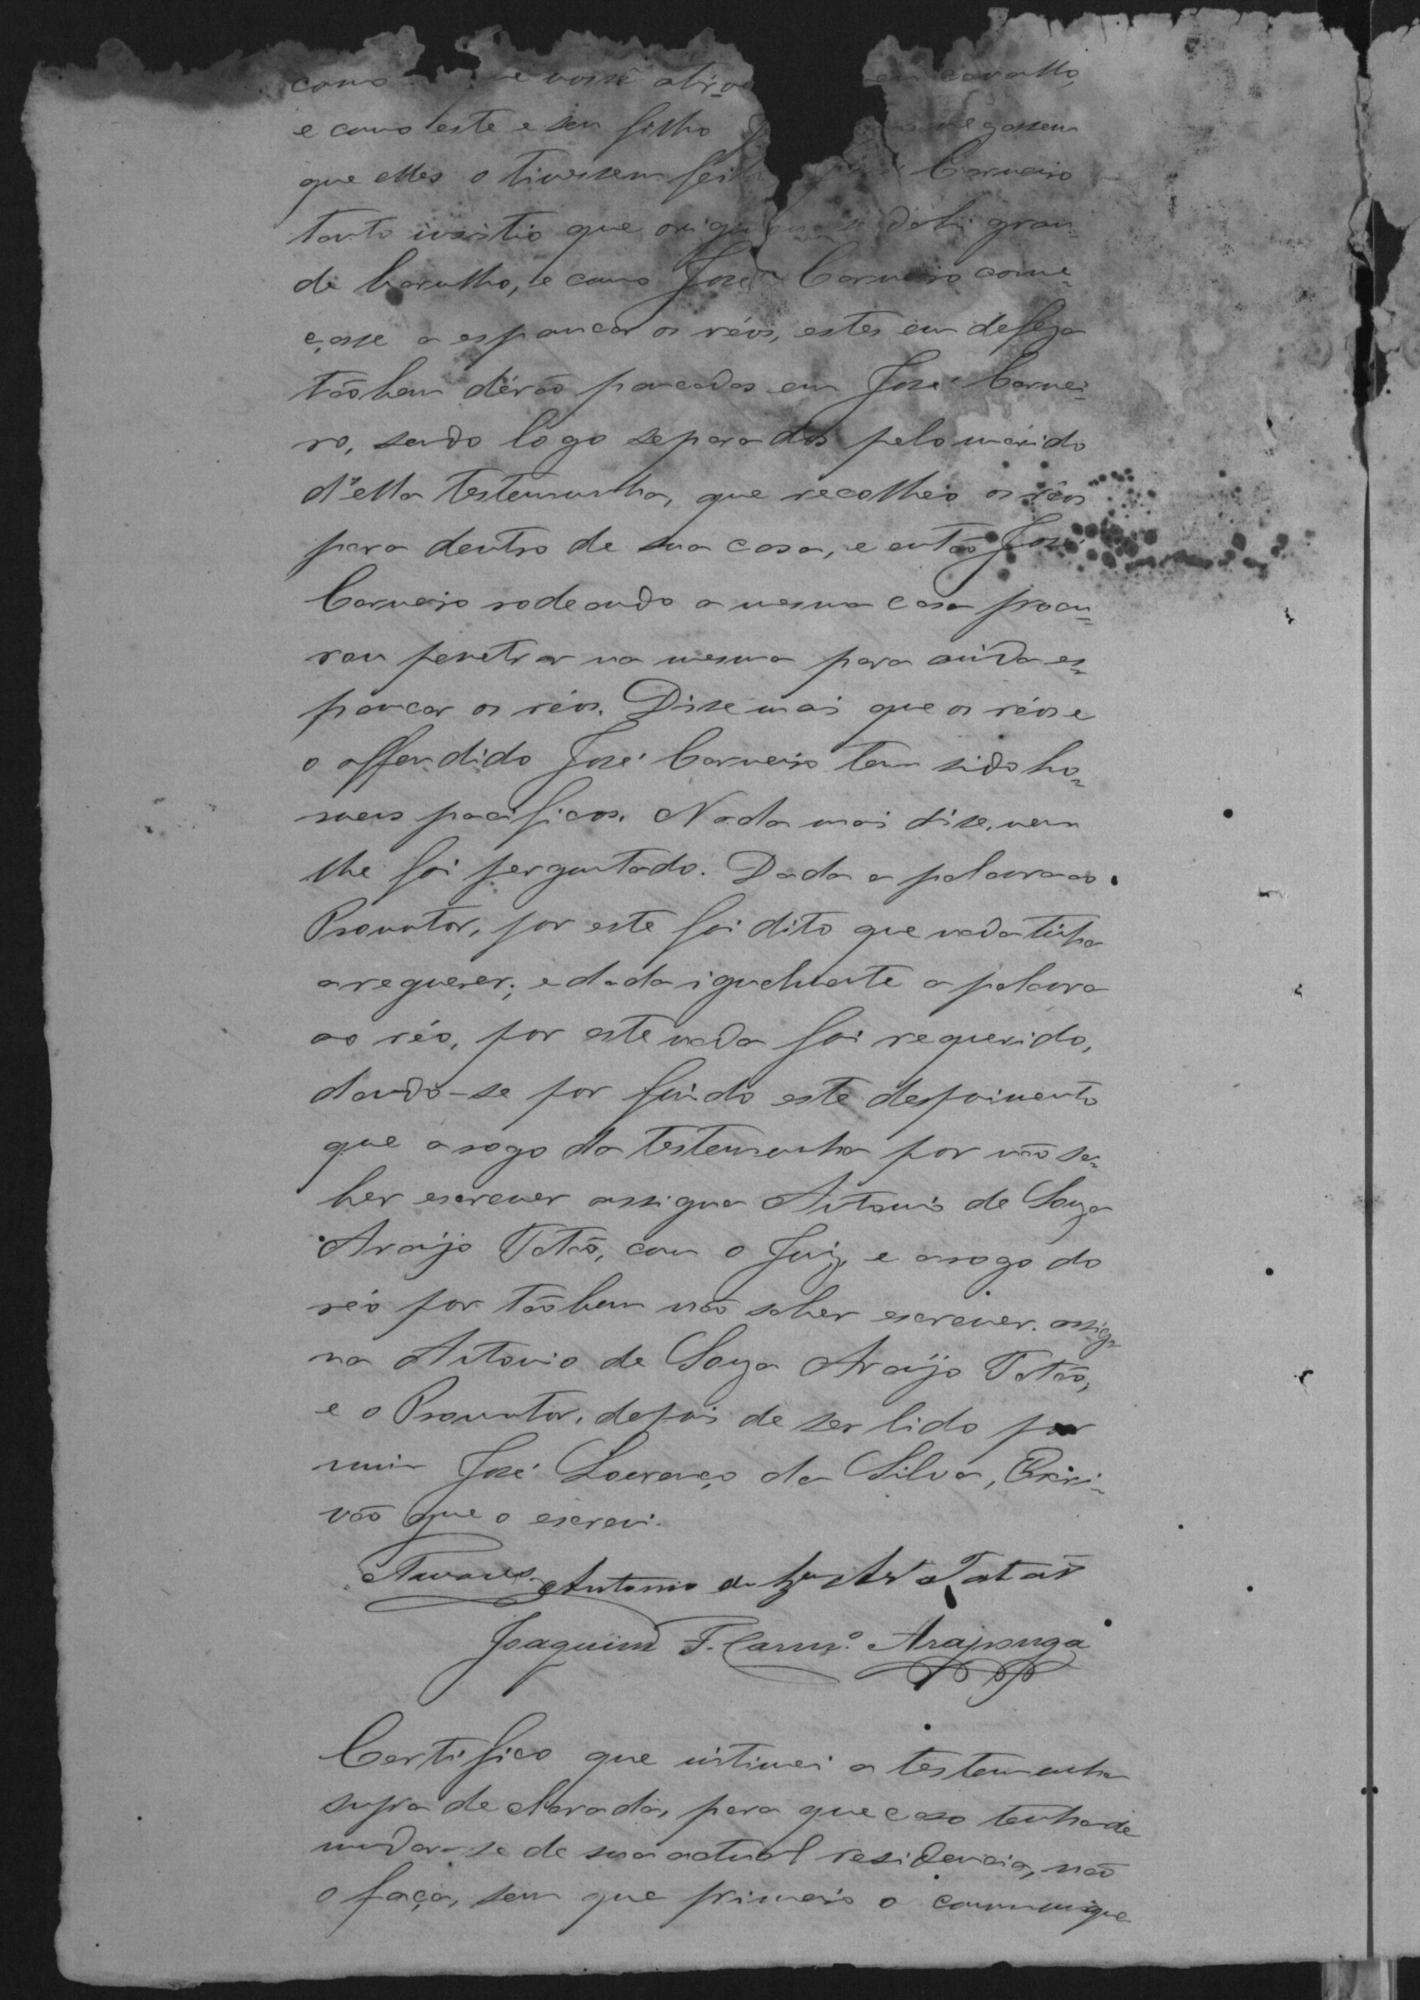 como que você atirou em cavallo,
e como este e seu filho negassem
que elles o tivessem feito Carneiro
tanto insistio que dahi gran-
de barulho, e como José Carneiro come-
çasse a espancar os réos, estes em defeza
tãobem dérão pancadas em José Carnei-
ro, sendo logo separados pelo marido
d'ella testemunha, que recolheo os réos
para dentro de sua casa, e então José
Carneiro rodeando a mesma casa procu-
rou penetrar na mesma para ainda es-
pancar os réos. Disse mais que os réos e
o offendido José Carneiro tem sido ho-
mens pacificos. Nada mais disse, nem
lhe foi perguntado. Dada a palavra ao
Promotor, por este foi dito que nada tinha
a requerer; e dada igualmente a palavra
ao réo, por este nada foi requerido,
dando-se por findo este despoimento
que a rogo da testemunha por não sa-
ber escrever assigna Antonio de Souza
Araújo Tatão, com o Juiz, e a rogo do
réo por tãobem não saber escrever, assig-
na Antonio de Souza Araújo Tatão,
e o Promotor, depois de ser lido por
mim José Lourenço da Silva, Escri-
vão que o escrevi.
Tavares Antonio de Sza Aro Tatão
Joaquim F. Carnro. Araponga
Certifico que intimei a testemunha
supra declarada, para que caso tenha de
mudar-se de sua actual residencia, não
o faça, sem que primeiro o communique